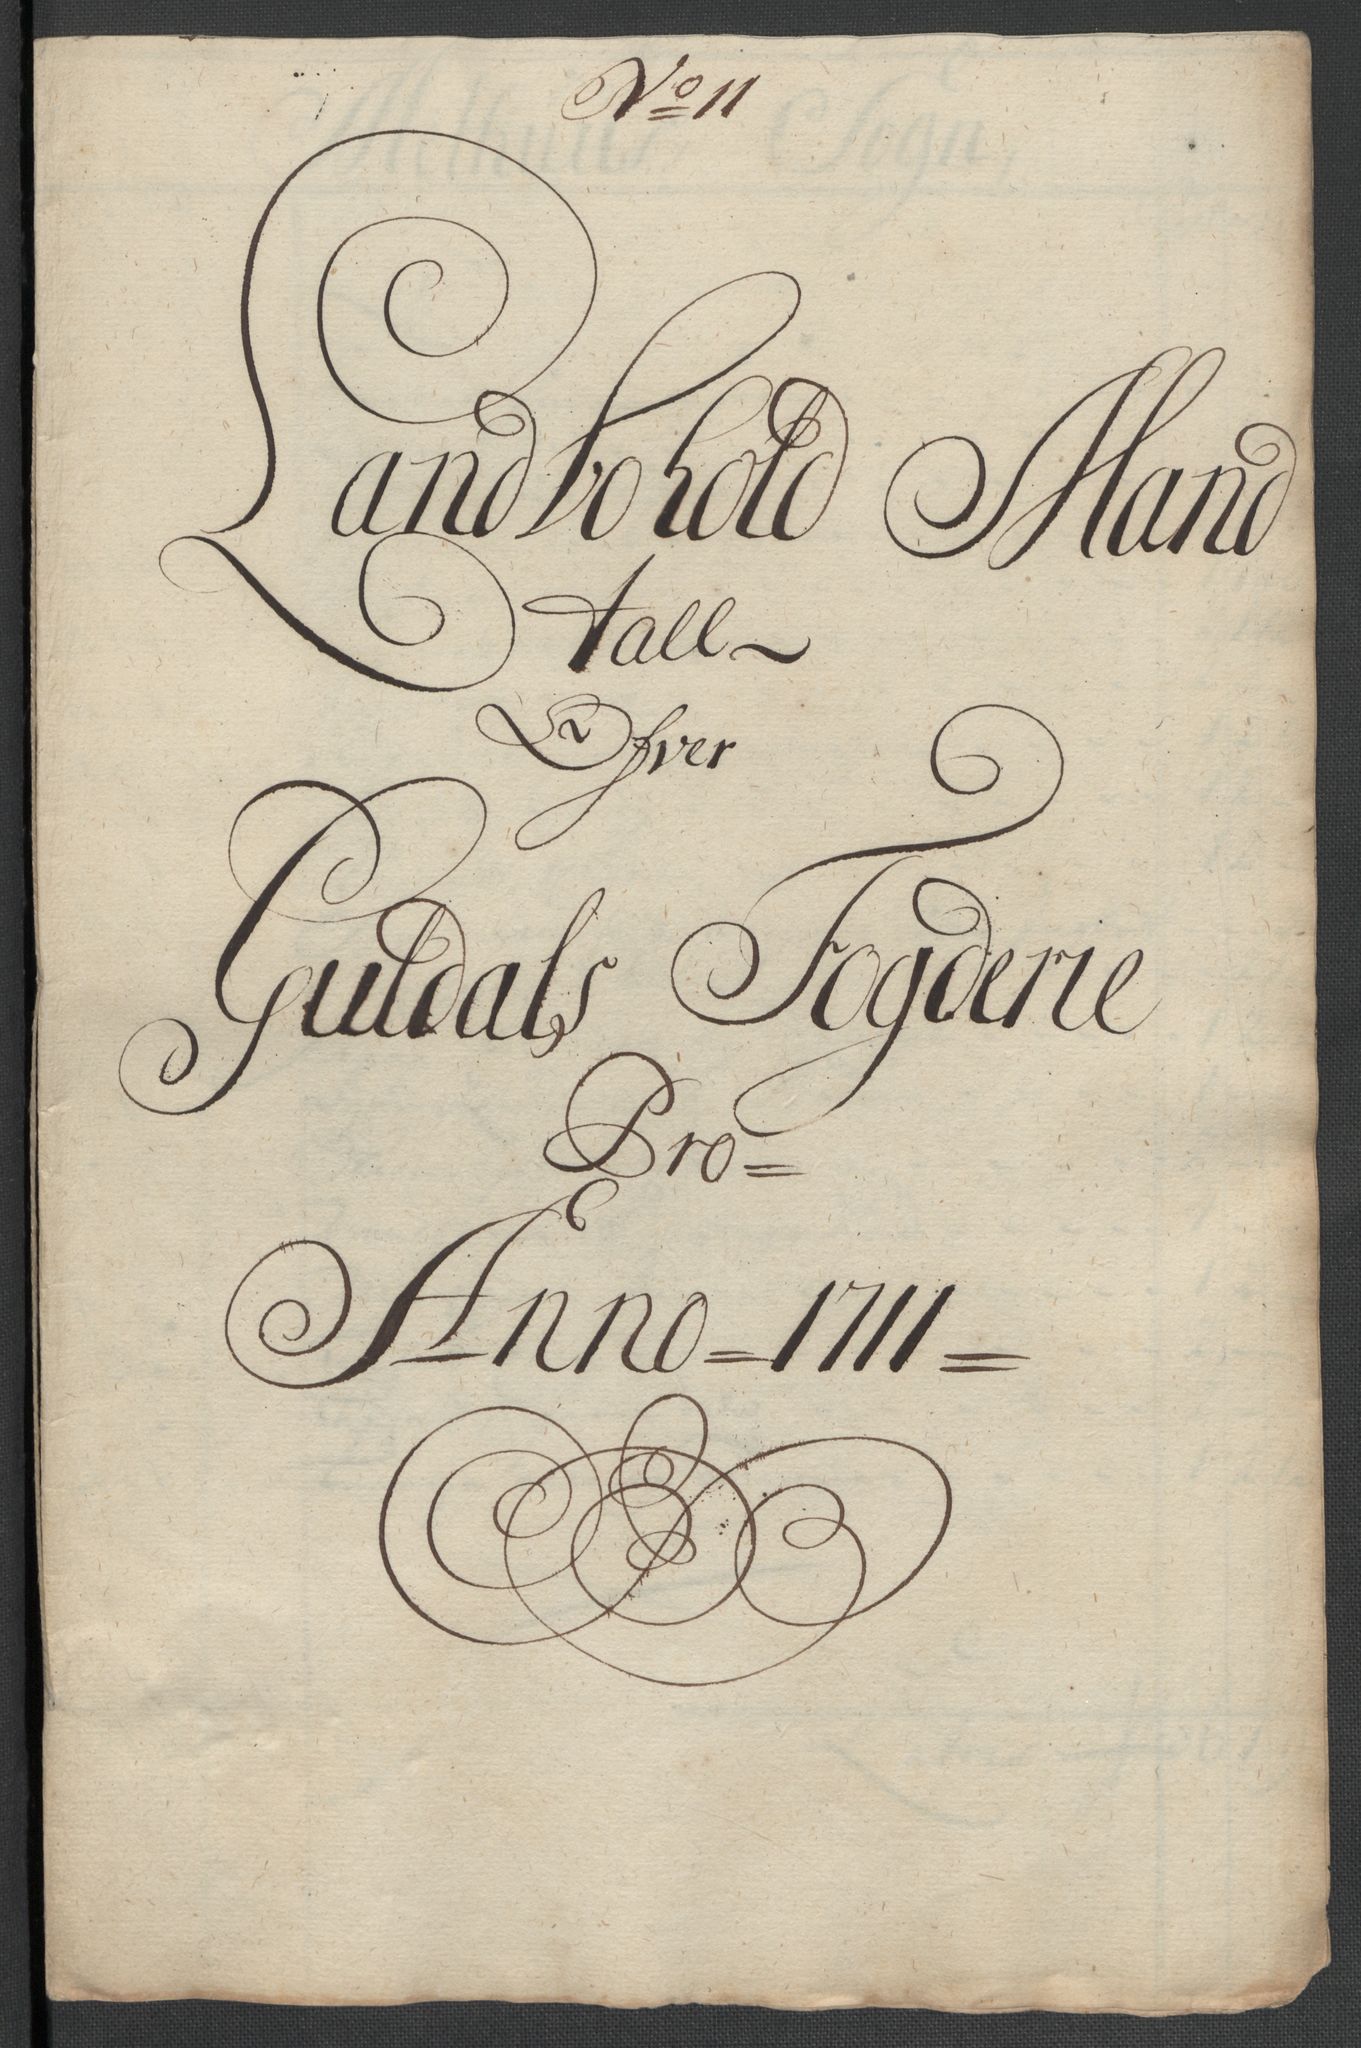 No 11
Landbohold Mand
tall
Ofver
Guldals Fogderie
Pro=
Anno = 1711 =